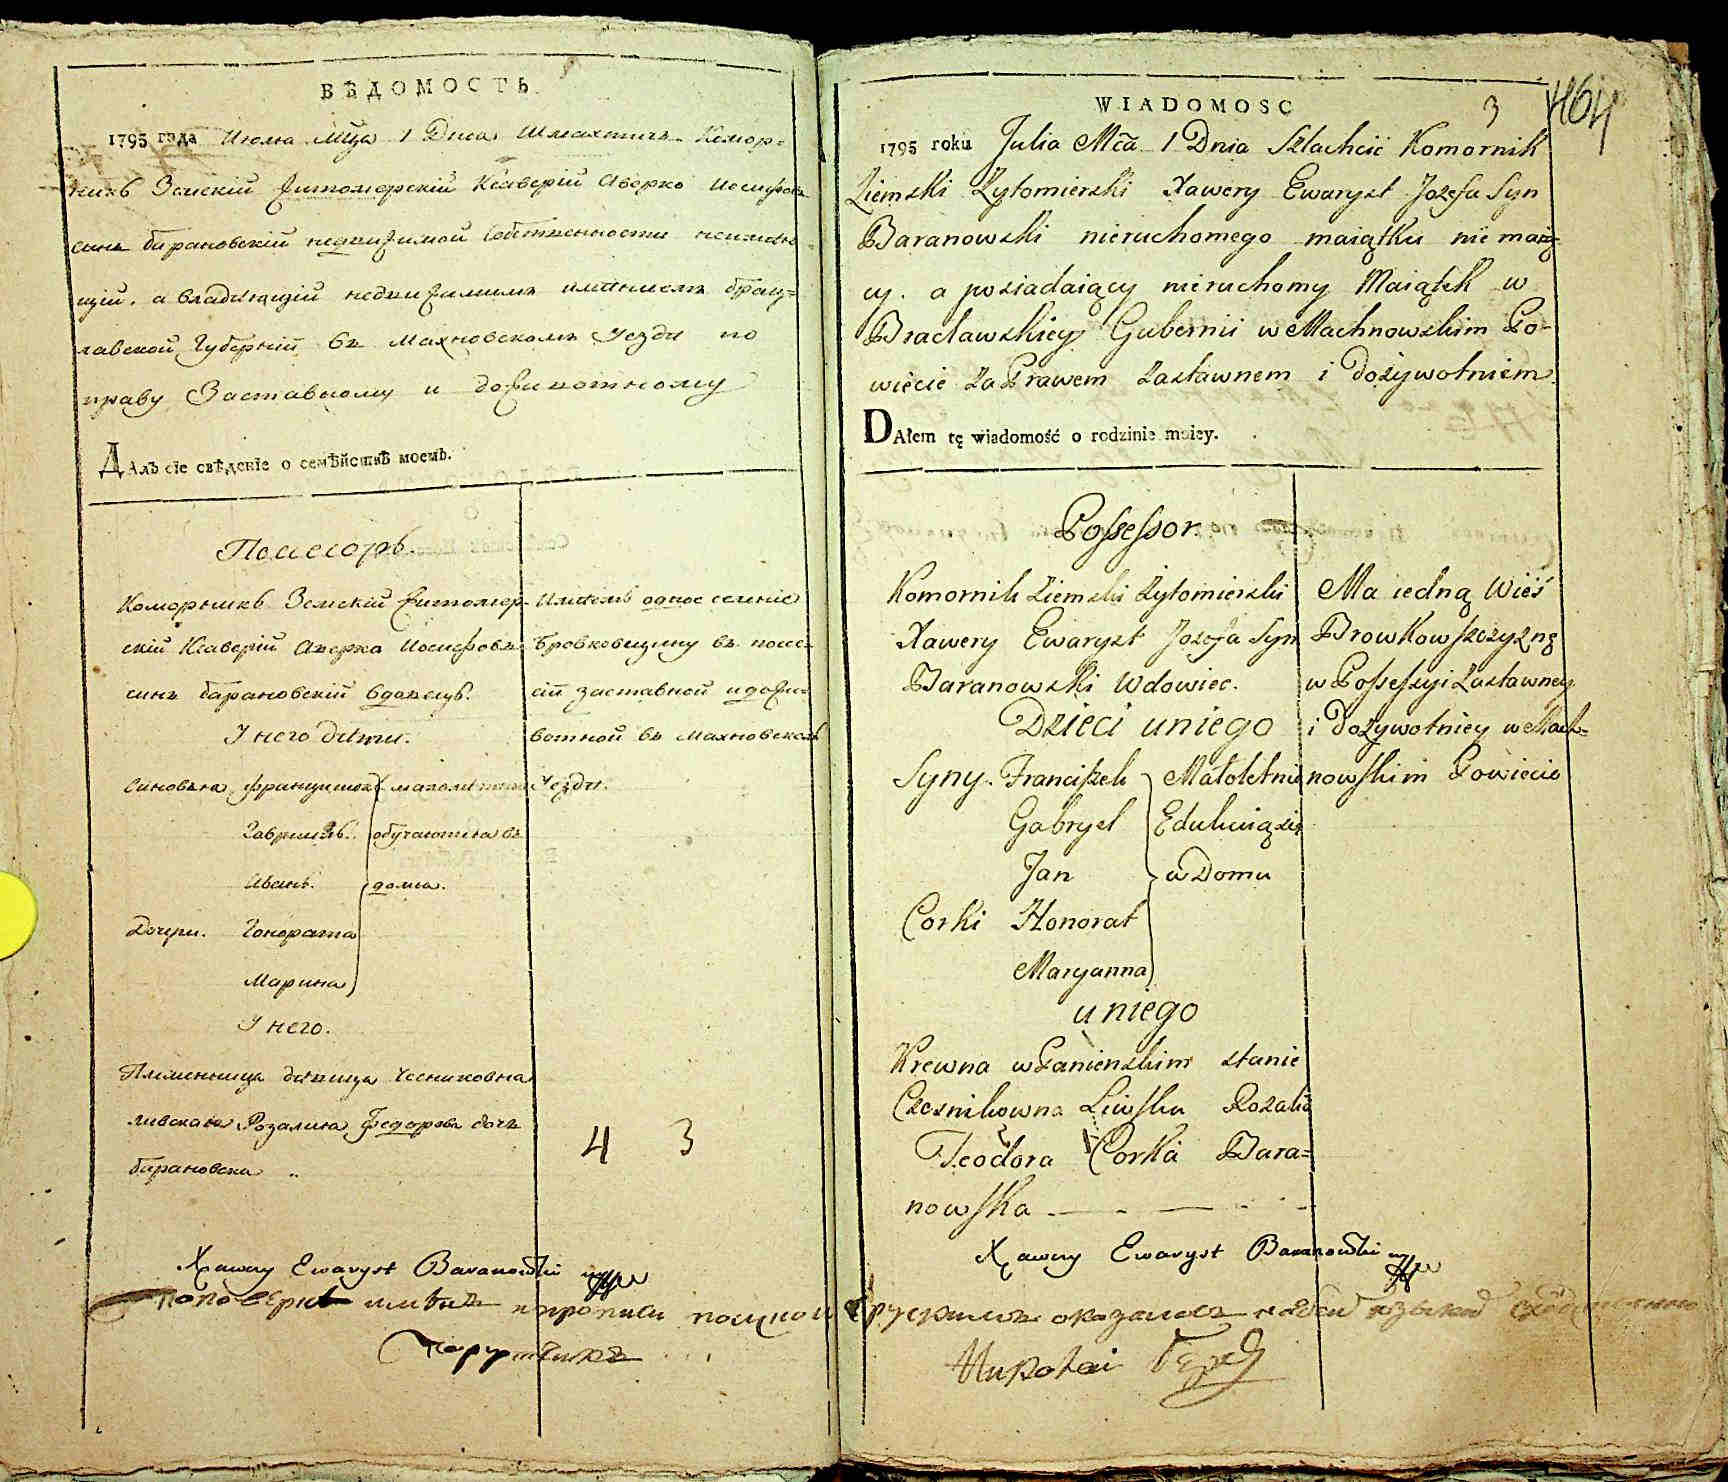 ВѢДОМОСТЬ
1795 года Июля Мца 1 Дня Шляхтичъ Комор=
никъ Земскій Житомерскій Ксаверій Аверко Иосифовъ
синъ Барановскій недвижимой собственности неимѣю
щій. а владѣющій недвижимимъ имѣниемъ Брац=
лавской Губерніи въ Махновскомъ уезди по
праву Заставному и доживотному
ДАлъ сіе свѣденіе о семѣйствѣ моемъ.
Посесоръ.
Коморникъ Земскій Житомер-
скій Ксаверій Аверко Иосифовъ
синъ Барановскій вдовецъ.
У него дѣти.
Синовья Францишекъ малолѣтни
Гавриилъ. обучаются въ
Иванъ. дома.
Дочери. Гонората
Марина
У него.
Племенница дѣвица Чесниковна
Ливская Розалия Федорова дочь
Барановска
Имѣетъ одное селение
Бровковщину въ посе-
сіи заставной и дожи-
вотной въ Махновскомъ
Уезди.
4 3
Xawery Ewaryst Baranowski mp
WIADOMOSC
3 464
1795 roku Julia Mca 1 Dnia Szlachcic Komornik
Ziemski Zytomierski Xawery Ewaryst Jozefa Syn
Baranowski nieruchomego maiątku nie maią-
cy. a posiadaiący nieruchomy Maiątek w
Bracławskiey Gubernii w Machnowskim Po-
wiecie za Prawem zastawnem i dożywotniem
DAłem tę wiadomość o rodzinie moiey.
Possessor.
Komornik Ziemski Zytomierski
Xawery Ewaryst Jozefa Syn
Baranowski Wdowiec.
Dzieci u niego
Syny. Franciszek Małoletnie
Gabryel Edukuią się
Jan w Domu
Corki Honorat
Maryanna
u niego
Krewna w Panienskim stanie
Czesnikowna Liwska Rozalia
Teodora Corka Bara=
nowska
Ma iedną Wieś
Browkowszczyznę
w Possessyi Zastawney
i Dożywotniey w Mach-
nowskim Powiecie
Xawery Ewaryst Baranowski mp
по поверке и прописи полской с рускимъ оказалось
Порутчикъ
Николай